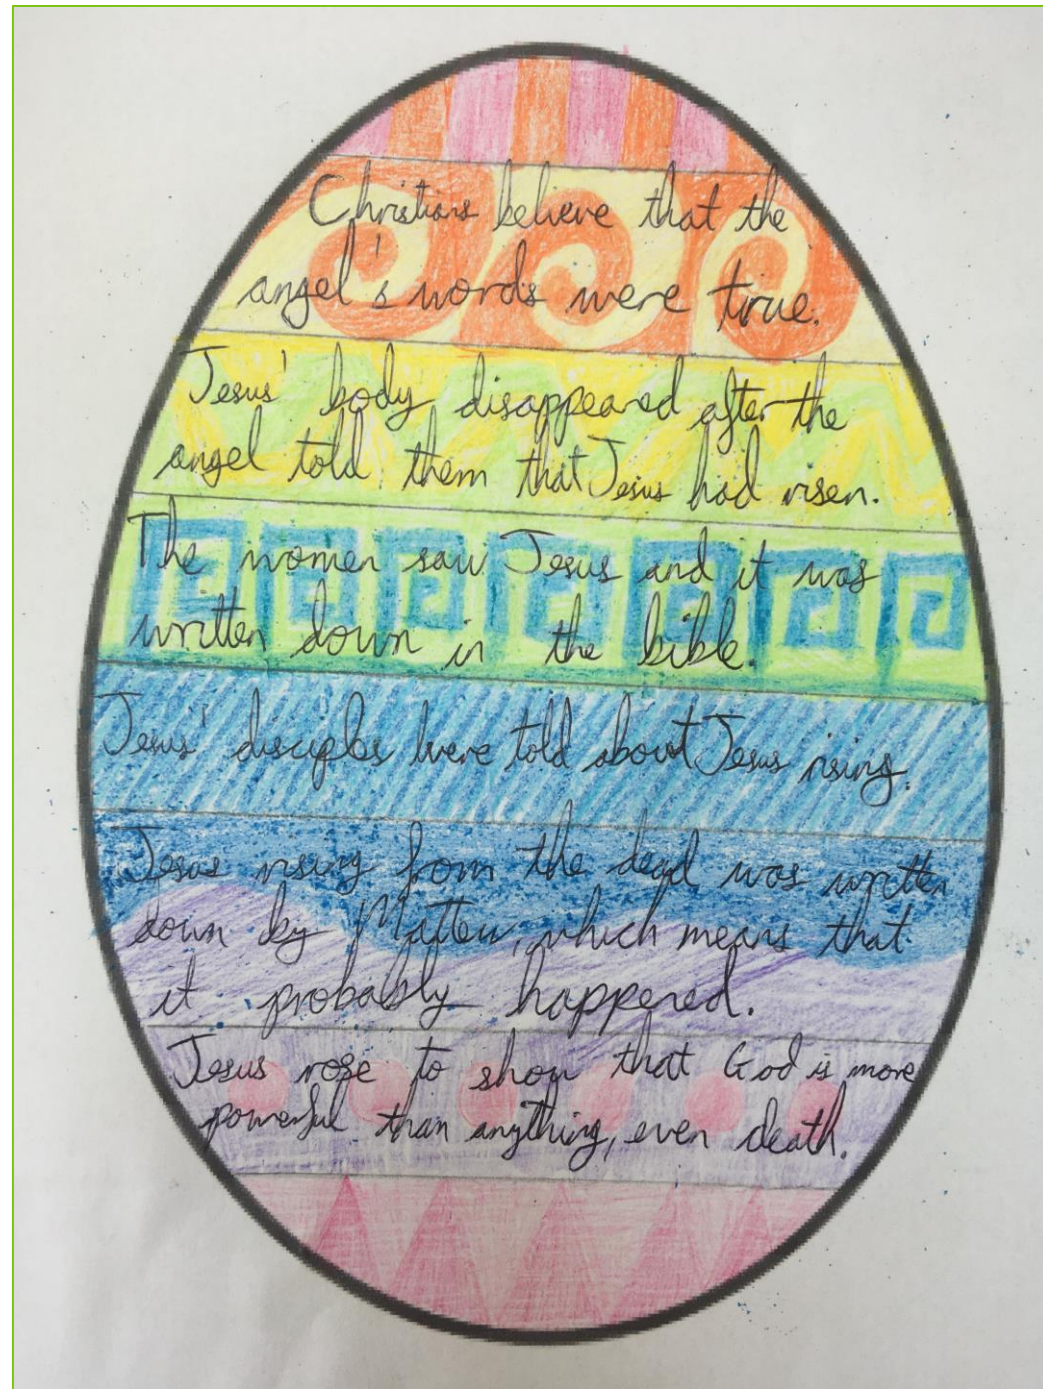 Christians believe that the
angel's words were true.
Jesus' body disappeared after the
angel told them that Jesus had risen.
The women saw Jesus and it was
written down in the bible.
Jesus' disciples were told about Jesus rising.
Jesus rising from the dead was written
down by Mattew, which means that
it probably happened.
Jesus rose to show that God is more
powerful than anything, even death.